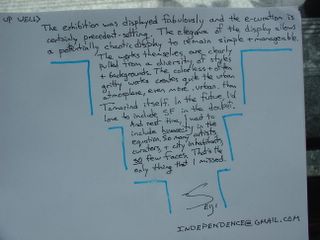 UP WELL>
The exhibition was displayed fabulously and the e-curation is
certainly precedent-setting. The elegance of the display allows
a potentially chaotic display to remain simple + manageable.
The works themselves, are clearly
pulled from a diversity of styles
+ backgrounds. The colorless + often
gritty works create quite the urban
atmosphere, even more urban than
Tamarind itself. In the future, I'd
love to include SF in the docket.
And next time, I want to
include humanity in the
equation. So many artists,
curators, + city inhabitants,
so few faces. That's the
only thing that I missed.
INDEPENDENCE@GMAIL.COM